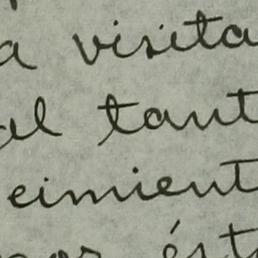 a visita
al tant
eimient
ést